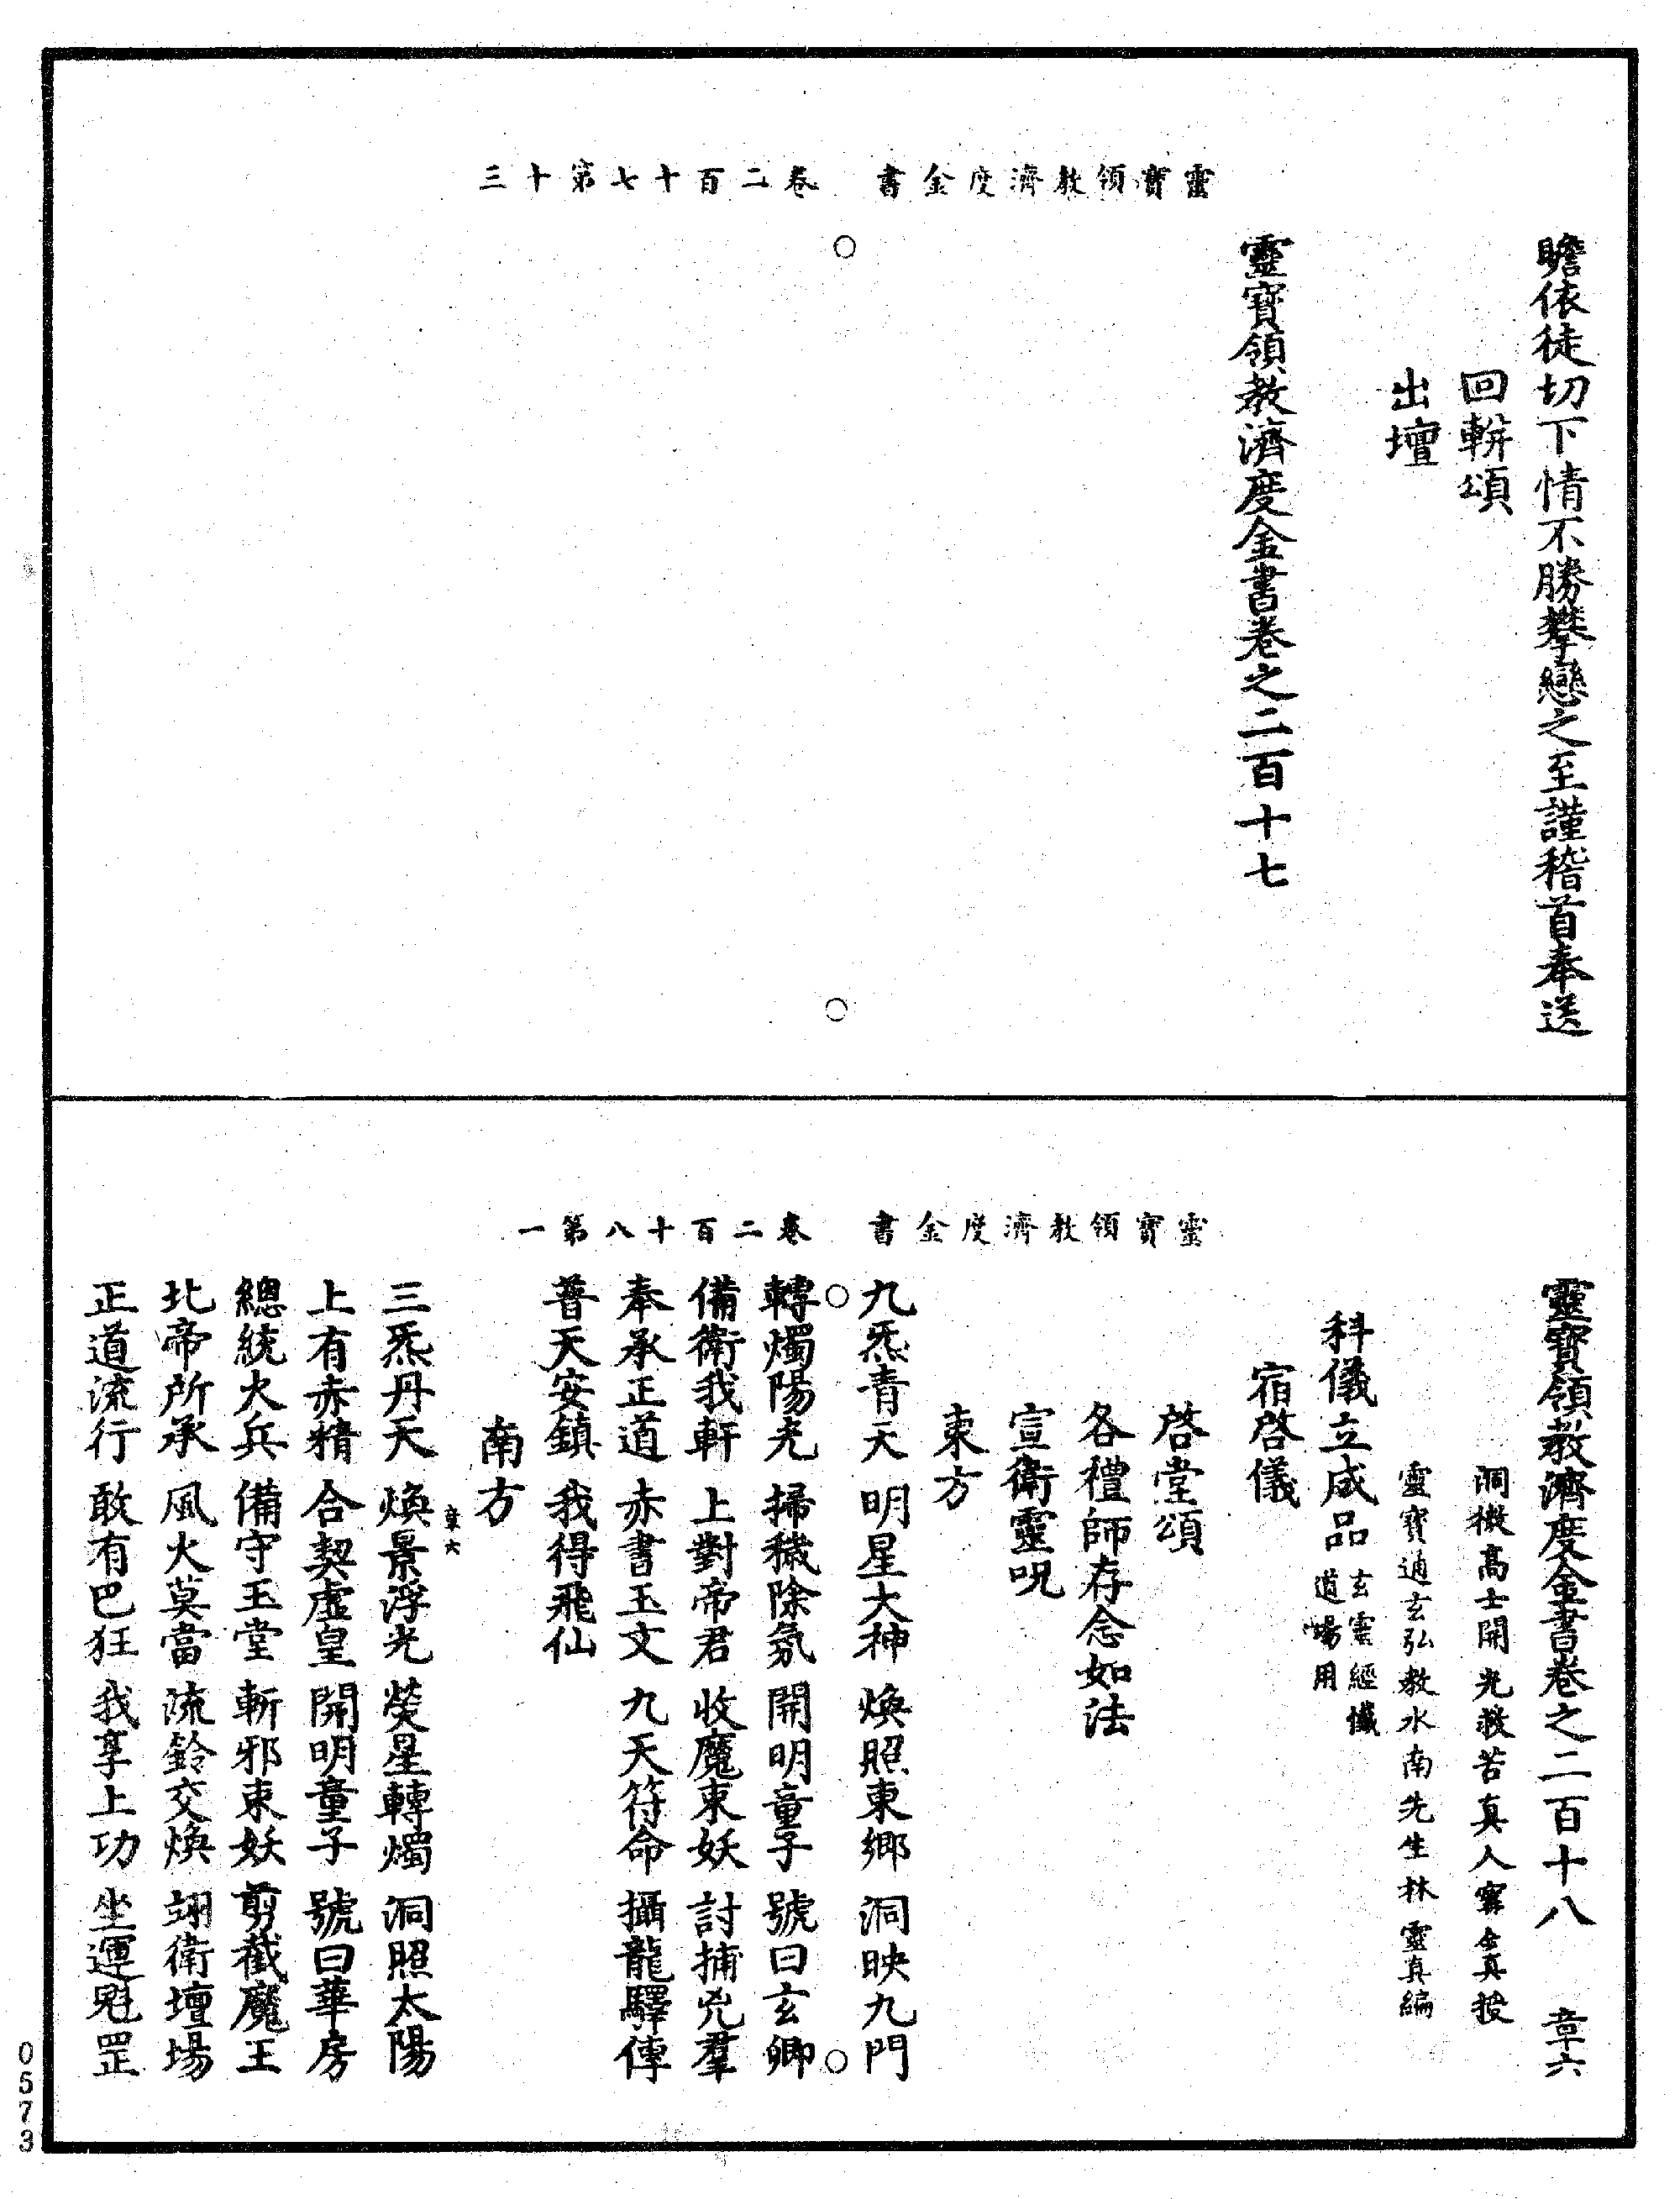 靈寶領教濟度金書　卷二百十七第十三
瞻依徒切下情不勝攀戀之至謹稽首奉送
回軿頌
出壇
靈寶領教濟度金書卷之二百十七
靈寶領教濟度金書　卷二百十八第一
靈寶領教濟度金書卷之二百十八　章六
洞微高士開光救苦真人甯全真授
靈寶通玄弘教水南先生林靈真編
科儀立成品 玄靈經懺
道場用
宿啓儀
啓堂頌
各禮師存念如法
宣衛靈呪
東方
九炁青天　明星大神　煥照東鄉　洞映九門
轉燭陽光　掃穢除氛　開明童子　號曰玄卿
備衛我軒　上對帝君　收魔束妖　討捕兇羣
奉承正道　赤書玉文　九天符命　攝龍驛傳
普天安鎮　我得飛仙
南方
章六
三炁丹天　煥景浮光　熒星轉燭　洞照太陽
上有赤精　合契虛皇　開明童子　號曰華房
總統火兵　備守玉堂　斬邪束妖　剪截魔王
北帝所承　風火莫當　流鈴交煥　翊衛壇場
正道流行　敢有巴狂　我享上功　坐運魁罡
0573